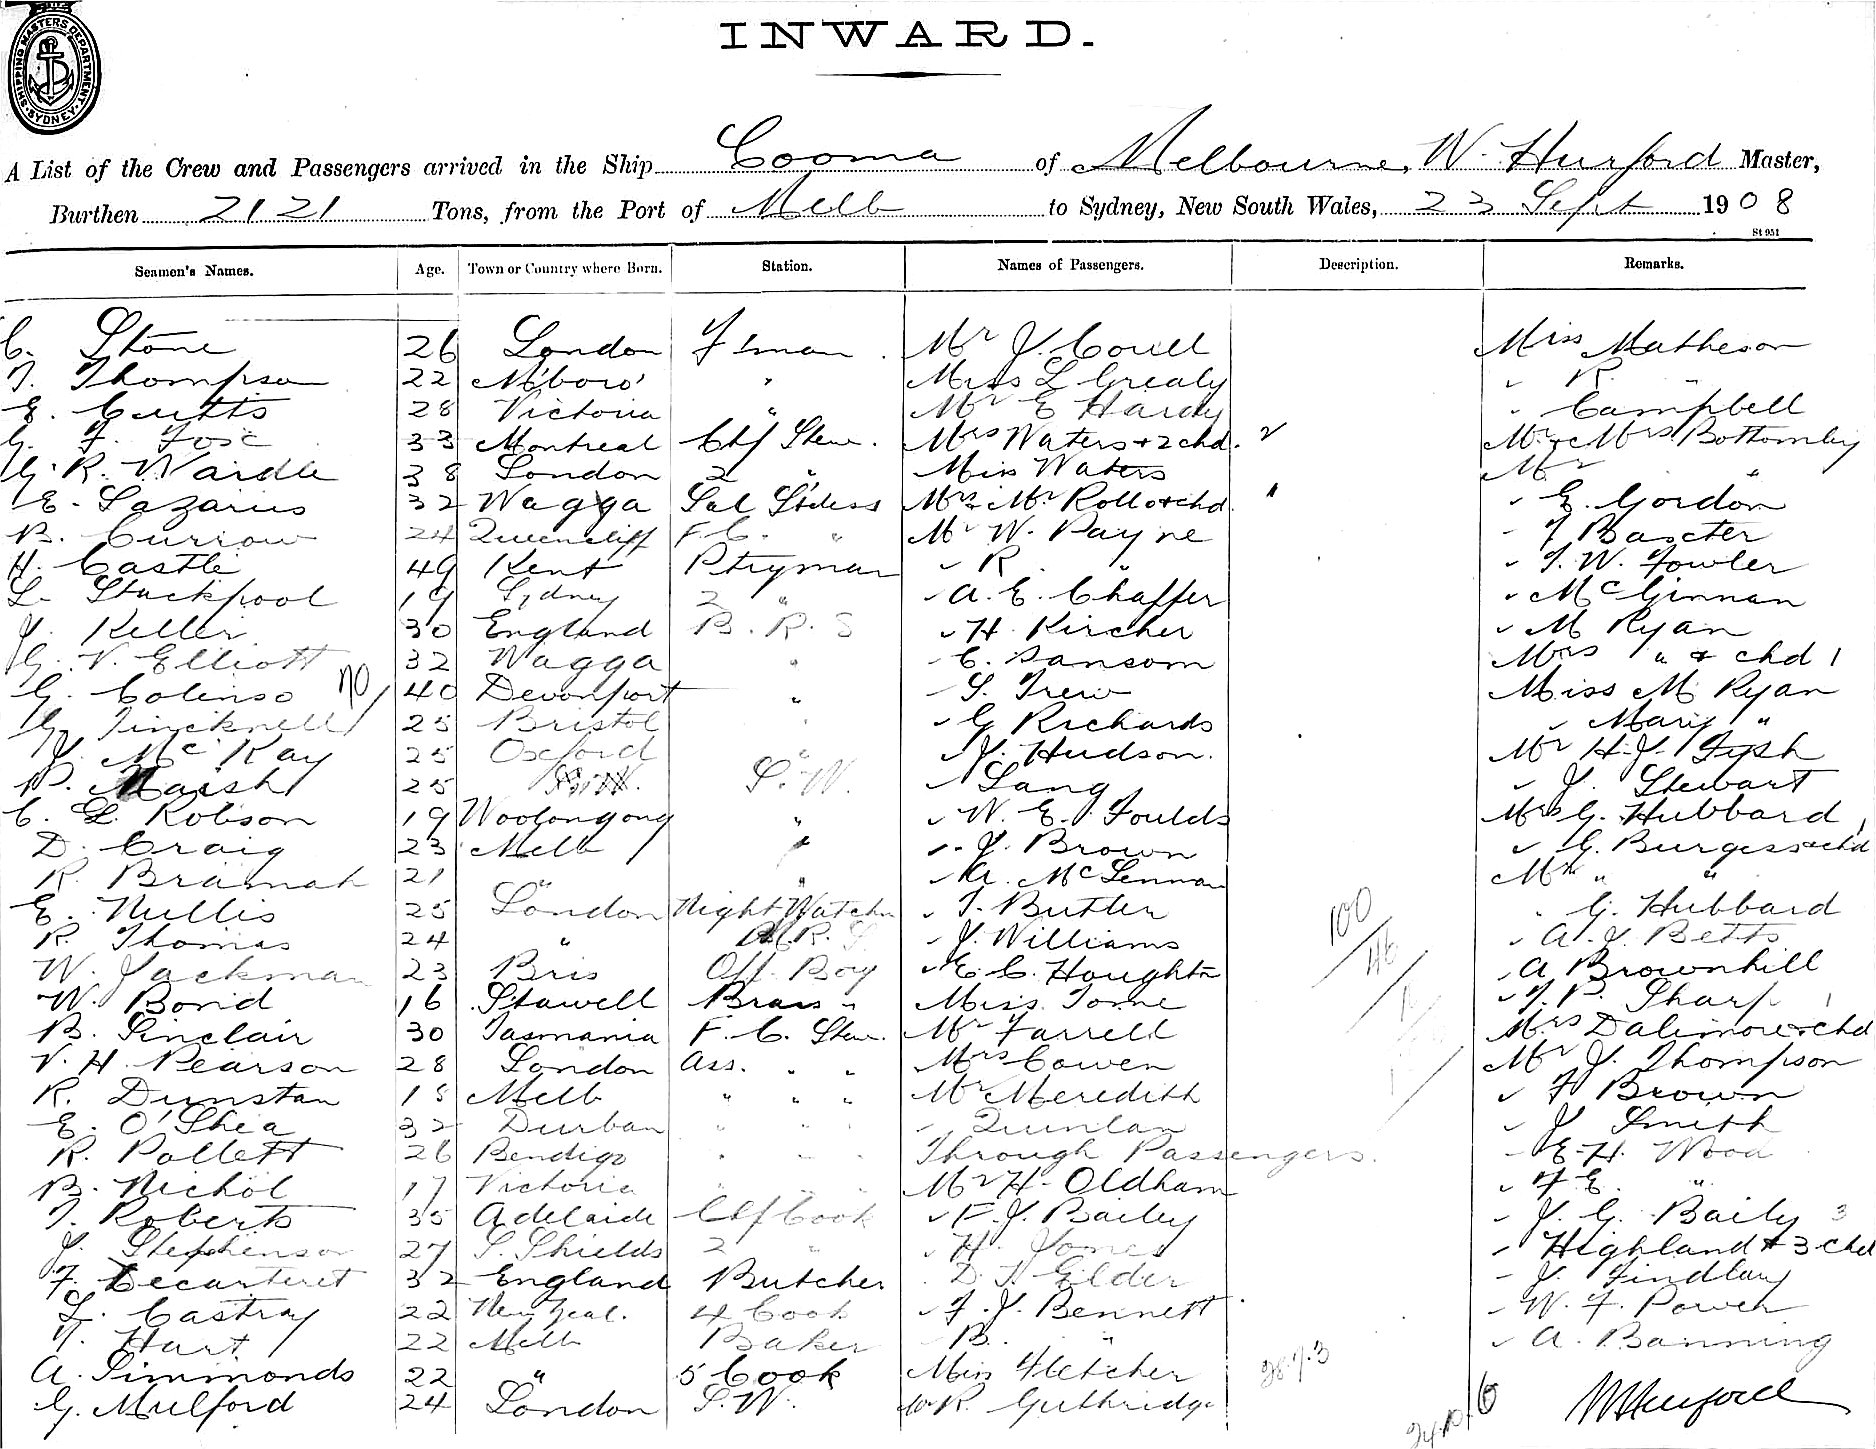 SHIPPING MASTERS DEPARTMENT SYDNEY
INWARD.
A List of the Crew and Passengers arrived in the Ship Cooma of Melbourne, W. Hurford Master,
Burthen 2121 Tons, from the Port of Melb to Sydney, New South Wales, 23 Sept 1908
St 951
Seamen's Names. Age. Town or Country where Born. Station. Names of Passengers. Description. Remarks.
C. Stone 26 London Fiman Mr J. Coull Miss Matheson
T. Thompson 22 M'boro' " Miss L Grealy " R. "
E. Cutts 28 Victoria " Mr E Hardy " Campbell
G. F. Fox 33 Montreal Chf Stew. Mrs Waters + 2 chd. 2 Mr & Mrs Bottomley
G. R. Wardle 38 London 2 " Miss Waters Mr "
E. Lazarus 32 Wagga Sal Stdess Mrs Mr Rollo & chd. 1 " E. Gordon
B. Curnow 24 Queencliff F. C. " Mr W. Payne " F Baxter
H. Castle 49 Kent Ptryman " R. " " T. W. Fowler
L. Stackpool 19 Sydney 2 " " A. E. Chaffer " McGinnan
J. Keller 30 England B. R. S " H. Kircher " M Ryan
G. V. Elliott 32 Wagga " " C. Sansom Mrs " & chd 1
G. Colenso no, 40 Devonport " " S. Trew Miss M Ryan
G. Tincknell 25 Bristol " " G Richards " Mary "
J. McKay 25 Oxford " " J. Hudson. Mr H. J. Tysh
P. Marsh 25 S. W. " Lang " J. Stewart
C. L. Robson 19 Woolongong " " W. E. Foulds Mrs G. Hubbard
D. Craig 23 Melb " " J. Brown " G. Burgess & chd 1
R. Bramah 21 " " " A. McLennan Mr " "
E. Nullis 25 London Night Watchn " T. Butler " G. Hubbard
R. Thomas 24 " B. R. S " J. Williams " A. J. Betts
W. Jackman 23 Bris Off. Boy " E C. Houghton " A Brownhill
W. Bond 16 Stawell Brass " Miss Tome " F. P. Sharp
B. Sinclair 30 Tasmania F. C. Stew. Mr Farrell Mrs Dalimore & chd 1
V. H. Pearson 28 London Ass. " " Mrs Cowen Mr J. Thompson
R. Dunstan 18 Melb " " " Mr Meredith " F Brown
E. O'Shea 32 Durban " " " " Quinlan " J Smith
R. Pollett 26 Bendigo " " " Through Passengers. " E. H. Wood
B. Nichol 17 Victoria " " " Mr H. Oldham " F E. "
T. Roberts 35 Adelaide Chf Cook " F. J. Bailey " J. G. Baily
J. Stephenson 27 S. Shields 2 " " H. Jones " Highland & 3 chd 3
F. Lecarteret 32 England Butcher " D. T. Gilder " J. Findlay
L. Castray 22 New Zeal. 4 Cook " F. J. Bennett " W. F. Power
T. Hart 22 Melb Baker " B. " " A. Banning
A. Simmonds 22 " 5 Cook Miss Fletcher
G. Mulford 24 London S. W. R. Guthridge W Hurford
100